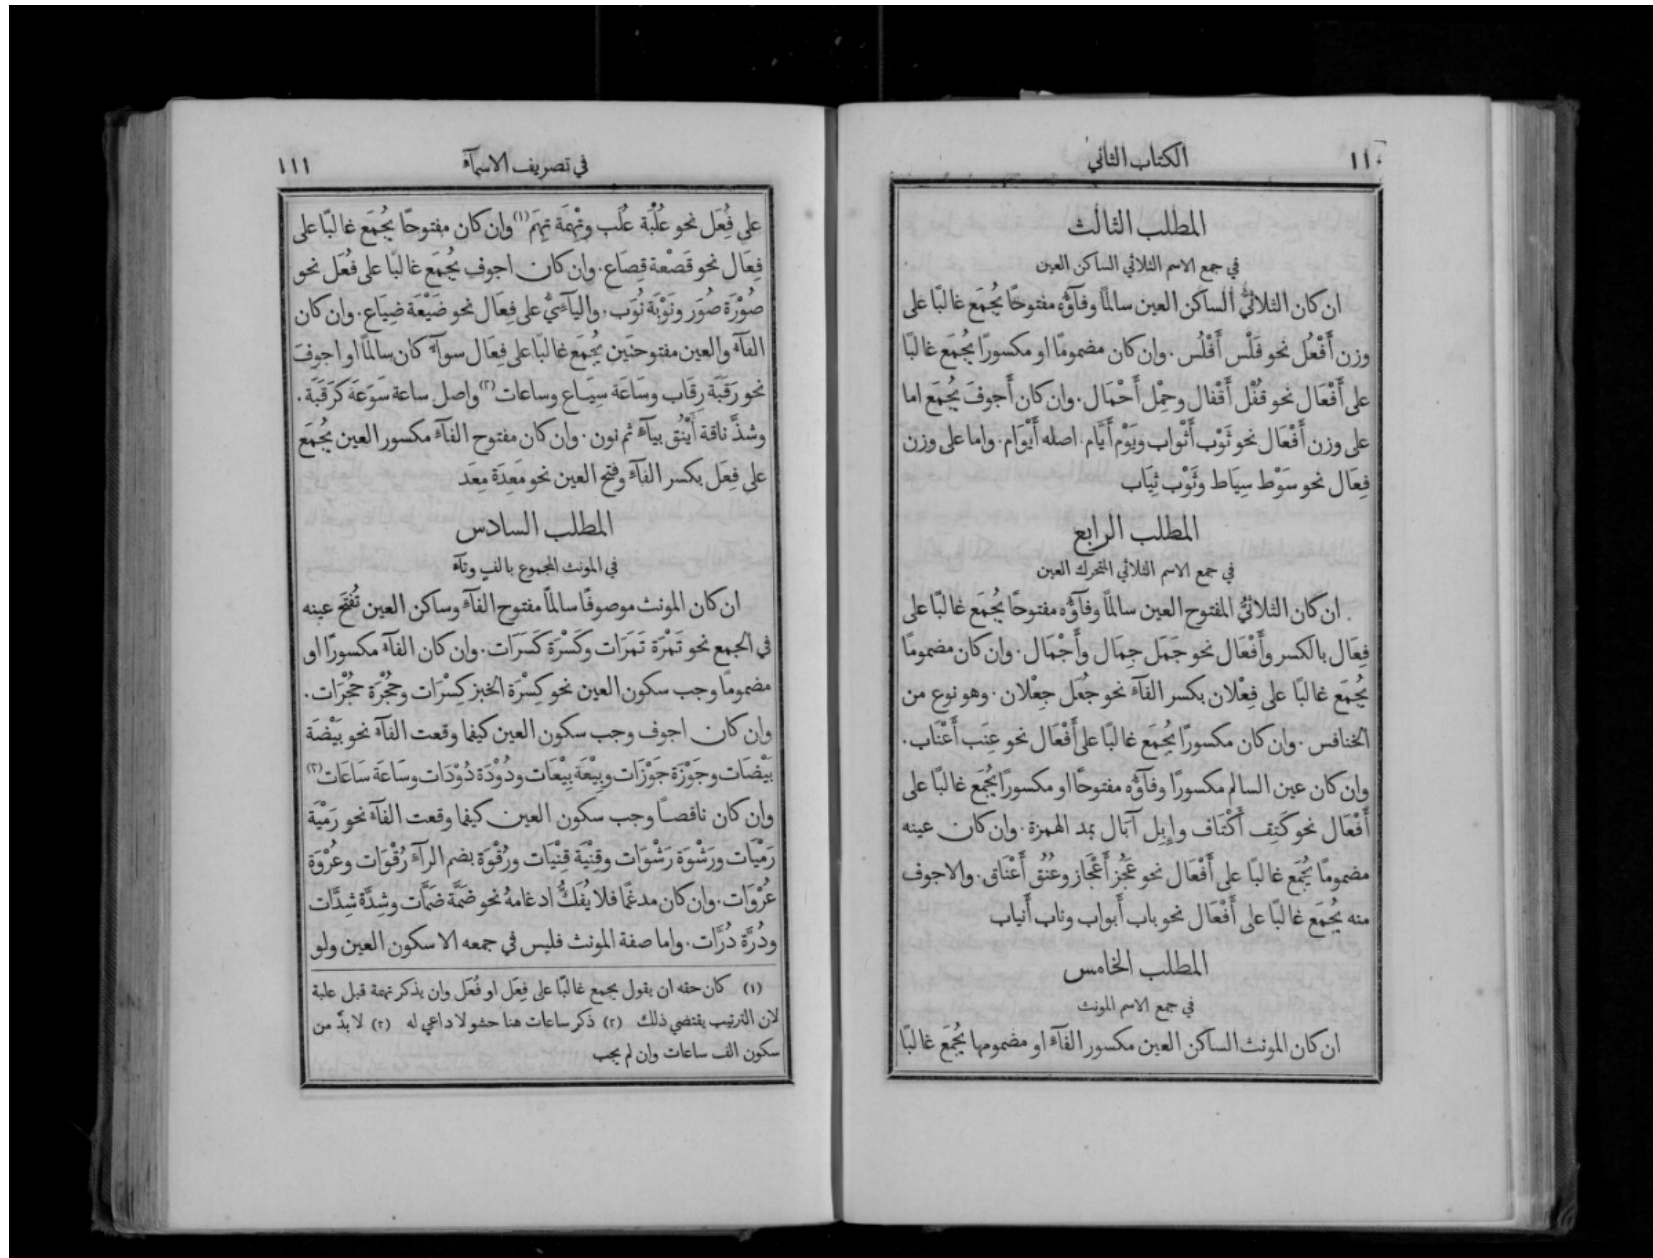 ١١٠
الكتاب الثاني
المطلب الثالث
في جمع الاسم الثلاثي الساكن العين
ان كان الثلاثيُّ الساكن العين سالمًا وفآؤُه مفتوحًا يُجمَع غالبًا على
وزن أَفْعُل نحو فَلْس أَفْلُس. وان كان مضمومًا او مكسورًا يُجمَع غالبًا
على أَفْعَال نحو قُفْل أَقْفال وحِمْل أَحْمَال. وان كان أَجوفَ يُجمَع اما
على وزن أَفْعَال نحو ثَوْب أَثْواب ويَوْم أَيَّام. اصله أَيْوَام. واما على وزن
فِعَال نحو سَوْط سِيَاط وثَوْب ثِيَاب
المطلب الرابع
في جمع الاسم الثلاثي المتحرك العين
ان كان الثلاثيُّ المفتوح العين سالمًا وفآؤُه مفتوحًا يُجمَع غالبًا على
فِعَال بالكسر وأَفْعَال نحو جَمَل جِمَال وأَجْمَال. وان كان مضمومًا
يُجمَع غالبًا على فِعْلان بكسر الفآء نحو جُعَل جِعْلان. وهو نوع من
الخنافس. وان كان مكسورًا يُجمَع غالبًا على أَفْعَال نحو عِنَب أَعْنَاب.
وان كان عين السالم مكسورًا وفآؤُه مفتوحًا او مكسورًا يُجمَع غالبًا على
أَفْعَال نحو كَتِف أَكْتَاف وإِبِل آبَال بمد الهمزة. وان كان عينه
مضمومًا يُجمَع غالبًا على أَفْعَال نحو عَجُز أَعْجَاز وعُنُق أَعْنَاق. والاجوف
منه يُجمَع غالبًا على أَفْعَال نحو باب أَبواب وناب أَنياب
المطلب الخامس
في جمع الاسم المونث
ان كان المونث الساكن العين مكسور الفآء او مضمومها يُجمَع غالبًا
في تصريف الاسمآء
١١١
على فِعَل نحو عُلْبَة عُلَب وتِهْمَة تِهَم(١) وان كان مفتوحًا يُجمَع غالبًا على
فِعَال نحو قَصْعة قِصَاع. وان كان اجوف يُجمَع غالبًا على فُعَل نحو
صُوْرَة صُوَر ونَوْبَة نُوَب. واليآءيُّ على فِعَال نحو ضَيْعَة ضِيَاع. وان كان
الفآء والعين مفتوحتَين يُجمَع غالبًا على فِعَال سوآء كان سالمًا او اجوفَ
نحو رَقَبَة رِقَاب وسَاعَة سِيَاع وساعات(٢) واصل ساعة سَوَعَة كَرَقَبَة.
وشذَّ ناقة أَيْنُق بيآء ثم نون. وان كان مفتوح الفآء مكسور العين يُجمَع
على فِعَل بكسر الفآء وفتح العين نحو مَعِدَة مِعَد
المطلب السادس
في المونث المجموع بالفٍ وتآء
ان كان المونث موصوفًا سالمًا مفتوح الفآء وساكن العين تُفتَح عينه
في الجمع نحو تَمْرَة تَمَرَات وكَسْرَة كَسَرَات. وان كان الفآء مكسورًا او
مضمومًا وجب سكون العين نحو كِسْرَة الخبز كِسْرَات وحُجْرَة حُجْرَات.
وان كان اجوف وجب سكون العين كيفما وقعت الفآء نحو بَيْضَة
بَيْضَات وجَوْزَة جَوْزَات وبِيْعَة بِيْعَات ودُوْدَة دُوْدَات وسَاعَة سَاعَات(٢)
وان كان ناقصًا وجب سكون العين كيفما وقعت الفآء نحو رَمْيَة
رَمْيَات ورَشْوَة رَشْوَات وقِنْيَة قِنْيَات ورُقْوَة بضم الرآء رُقْوَات وعُرْوَة
عُرْوَات. وان كان مدغمًا فلا يُفَكُّ ادغامهُ نحو ضَمَّة ضَمَّات وشِدَّة شِدَّات
ودُرَّة دُرَّات. واما صفة المونث فليس في جمعه الا سكون العين ولو
(١) كان حقه ان يقول يجمع غالبًا على فِعَل او فُعَل وان يذكر تهمة قبل علبة
لان الترتيب يقتضي ذلك (٢) ذكر ساعات هنا حشو لا داعي له (٢) لا بدَّ من
سكون الف ساعات وان لم يجب